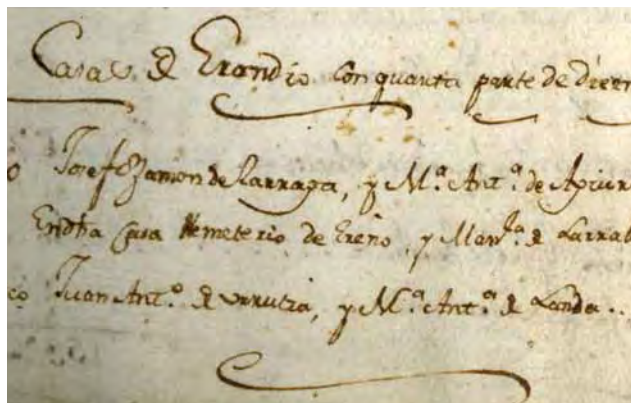 Casas de Erandio con quarta parte de diezm
Josef Ramon de Larraga, y M.ª Ant.ª de Apiur
En dha Casa Hemeterio de Ereño, y Man.la de Larrab
co Juan Ant.º de Urrutia, y M.ª Ant.ª de Landa..